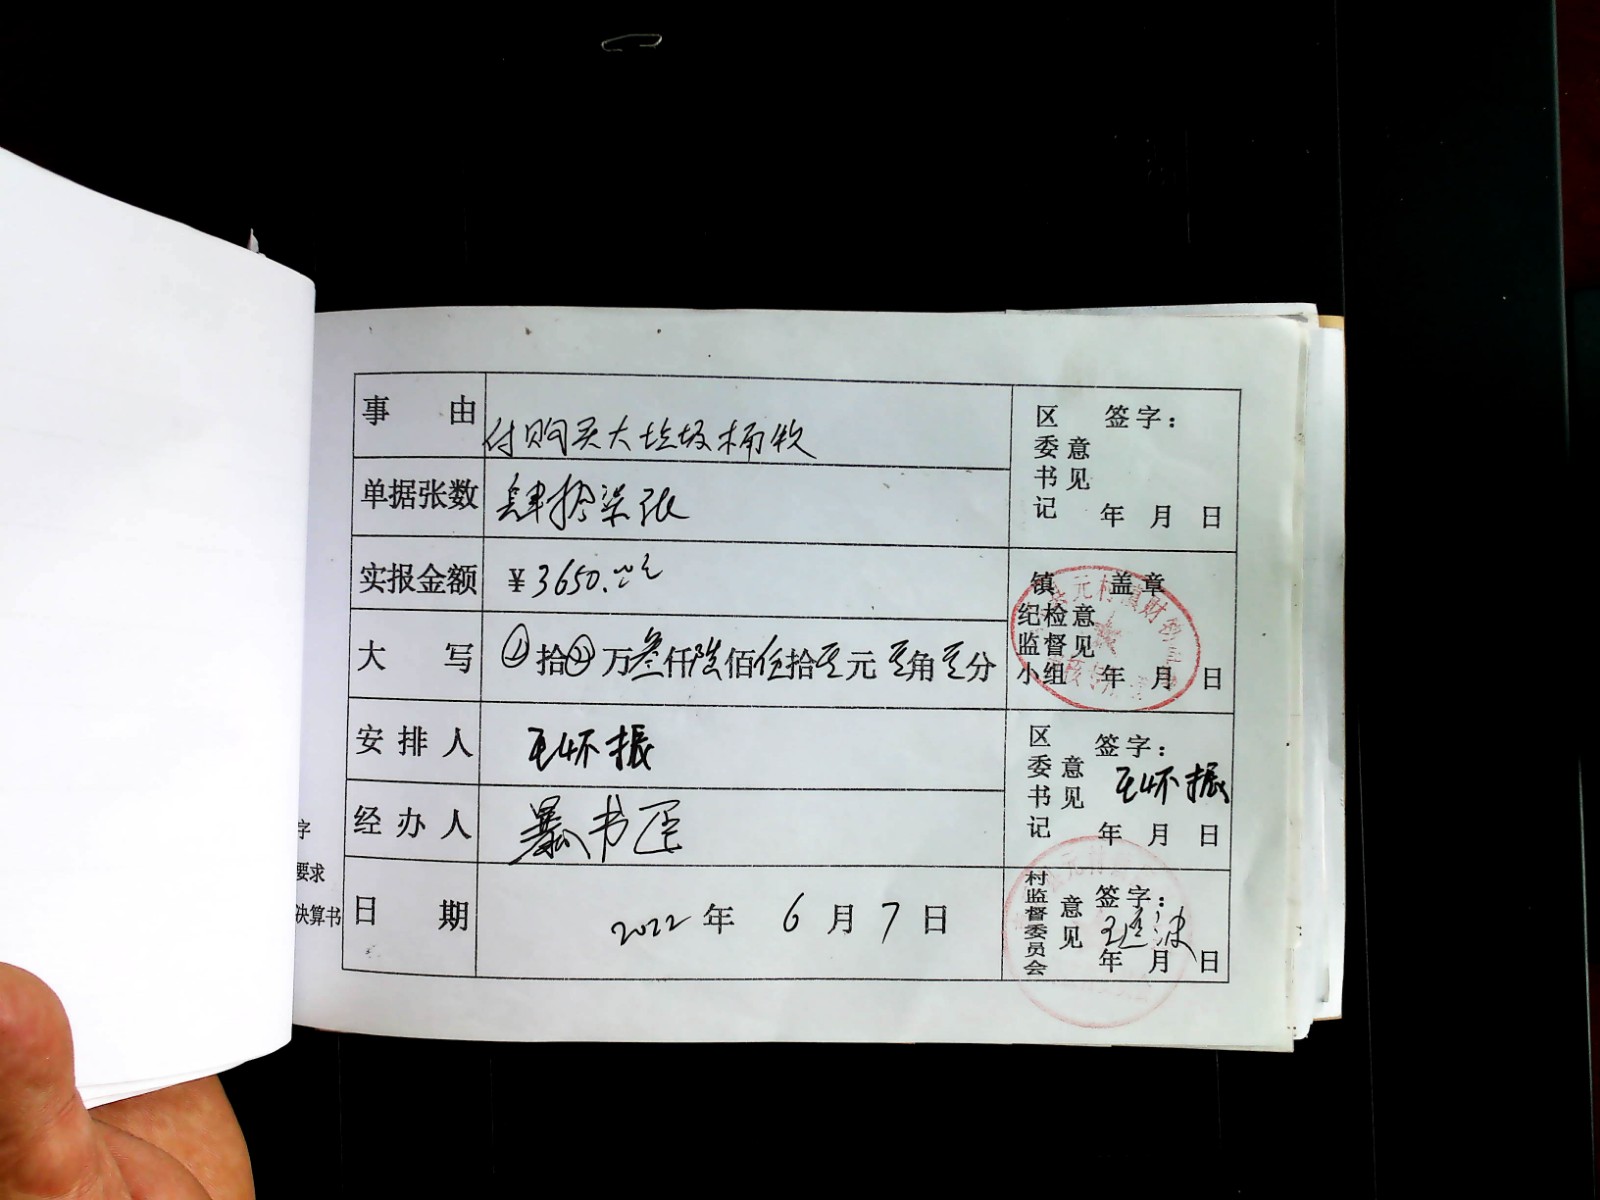 事 由 付购买大垃圾桶款
单据张数 肆拾柒张
实报金额 ¥3650.00元
大 写 拾 万叁仟陆佰伍拾零元零角零分
安排人 王怀振
经办人 暴书
日 期 2022年 6月7日
区委书记意见 签字:
年 月 日
镇纪检监督小组意见 盖章
年 月 日
区委书记意见 签字: 王怀振
年 月 日
村监督委员会意见 签字:
年 月 日
字
要求
决算书